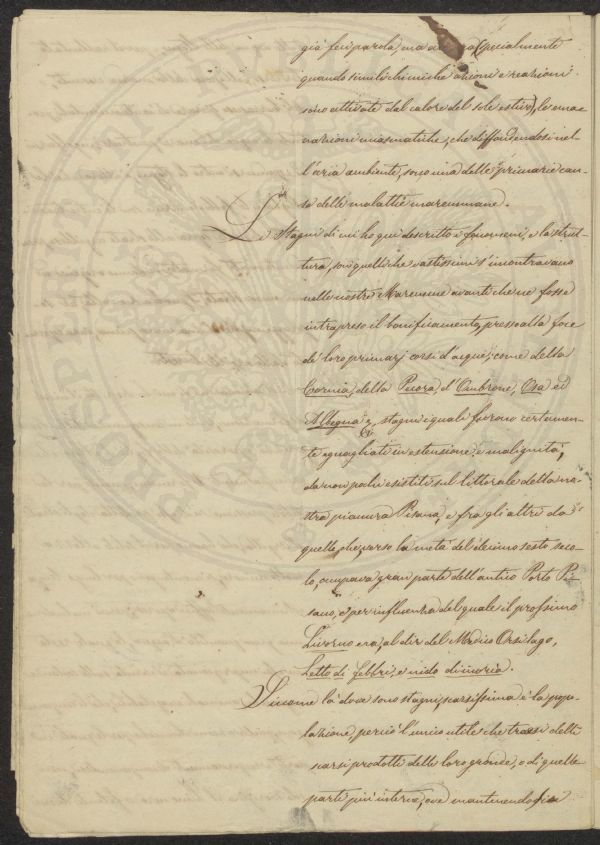 già feci parola, ma ancora (specialmente
quando simili chimiche azioni e reazioni
sono attivate dal calore del sole estivo), le ema-
nazioni miasmatiche, che diffondendosi nel-
l'aria ambiente, sono una delle primarie cau-
se delle malattie maremmane.
Li Stagni di cui ho qui descritto i fenomeni, e la strut-
tura, son quelli che vastissimi s'incontravano
nelle nostre Maremme avanti che ne fosse
intrapreso il bonificamento, presso alla foce
de' loro primarj corsi d'acque; come della
Cornia, della Pecora, d'Ombrone, Osa ed
Albegna; stagni i quali furono certamen-
te eguagliati in estensione, e malignità,
da non pochi esistiti sul littorale della no-
stra pianura Pisana, e fra gli altri da
quello, che, verso la metà del decimo sesto seco-
lo, occupava gran parte dell'antico Porto Pi-
sano, e per influenza del quale il prossimo
Livorno era, al dir del Medico Orsilago,
Letto di febbri, e nido di moria.
Siccome là dove sono stagni, scarsissima è la popo-
lazione, perciò l'unico utile che traesi delli
scarsi prodotti delle loro gronde, e di quelle
parti più interne, ove mantenendosi